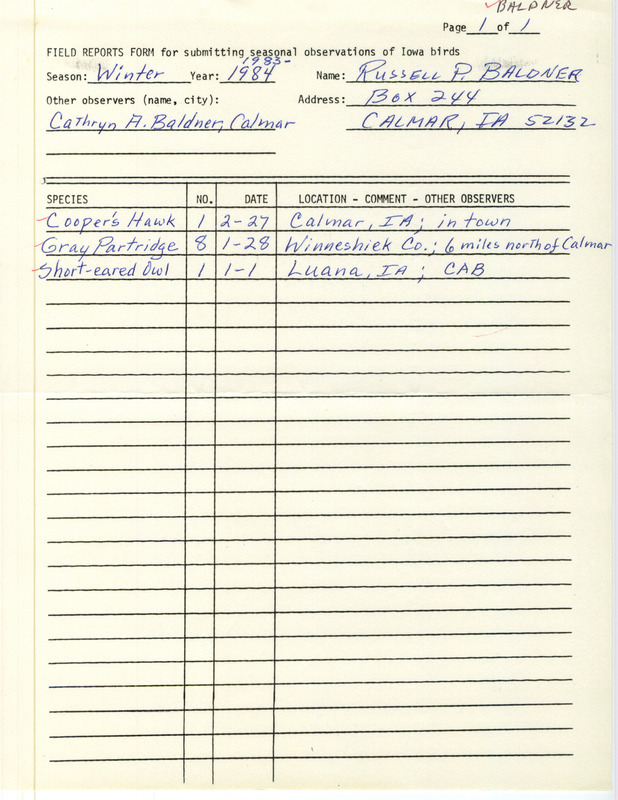 BALDNER
Page 1 of 1
FIELD REPORTS FORM for submitting seasonal observations of Iowa birds
1983-
Season: Winter Year: 1984 Name: RUSSELL P. BALDNER
Other observers (name, city): Address: BOX 244
Cathryn A. Baldner, Calmar CALMAR, IA 52132
SPECIES NO. DATE LOCATION - COMMENT - OTHER OBSERVERS
Cooper's Hawk 1 2-27 Calmar, IA; in town
Gray Partridge 8 1-28 Winneshiek Co.; 6 miles north of Calmar
Short-eared Owl 1 1-1 Luana, IA; CAB